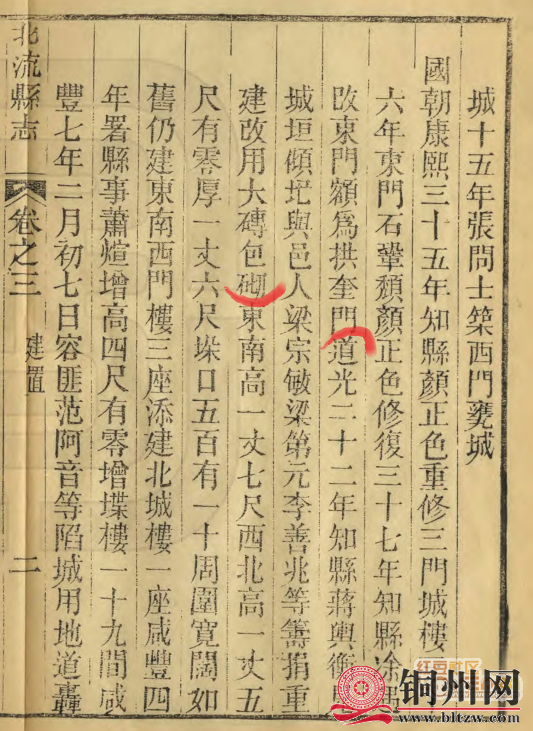 城十五年張問士築西門甕城
國朝康熙三十五年知縣顏正色重修三門城樓
六年東門石鞏頹顏正色修復三十七年知縣
改東門額為拱奎門道光二十二年知縣蔣輿
城垣傾圮與邑人梁宗敏梁第元李善兆等籌捐重
建改用大磚包砌東南高一丈七尺西北高一丈五
尺有零厚一丈六尺垛口五百有一十周圍寬闊如
舊仍建東南西門樓三座添建北城樓一座咸豐四
年署縣事蕭煊增高四尺有零增堞樓一十九間咸
豐七年二月初七日容匪范阿音等陷城用地道轟
北流縣志
卷之三
建置
二
红豆社区
铜州网
www.bltzw.com